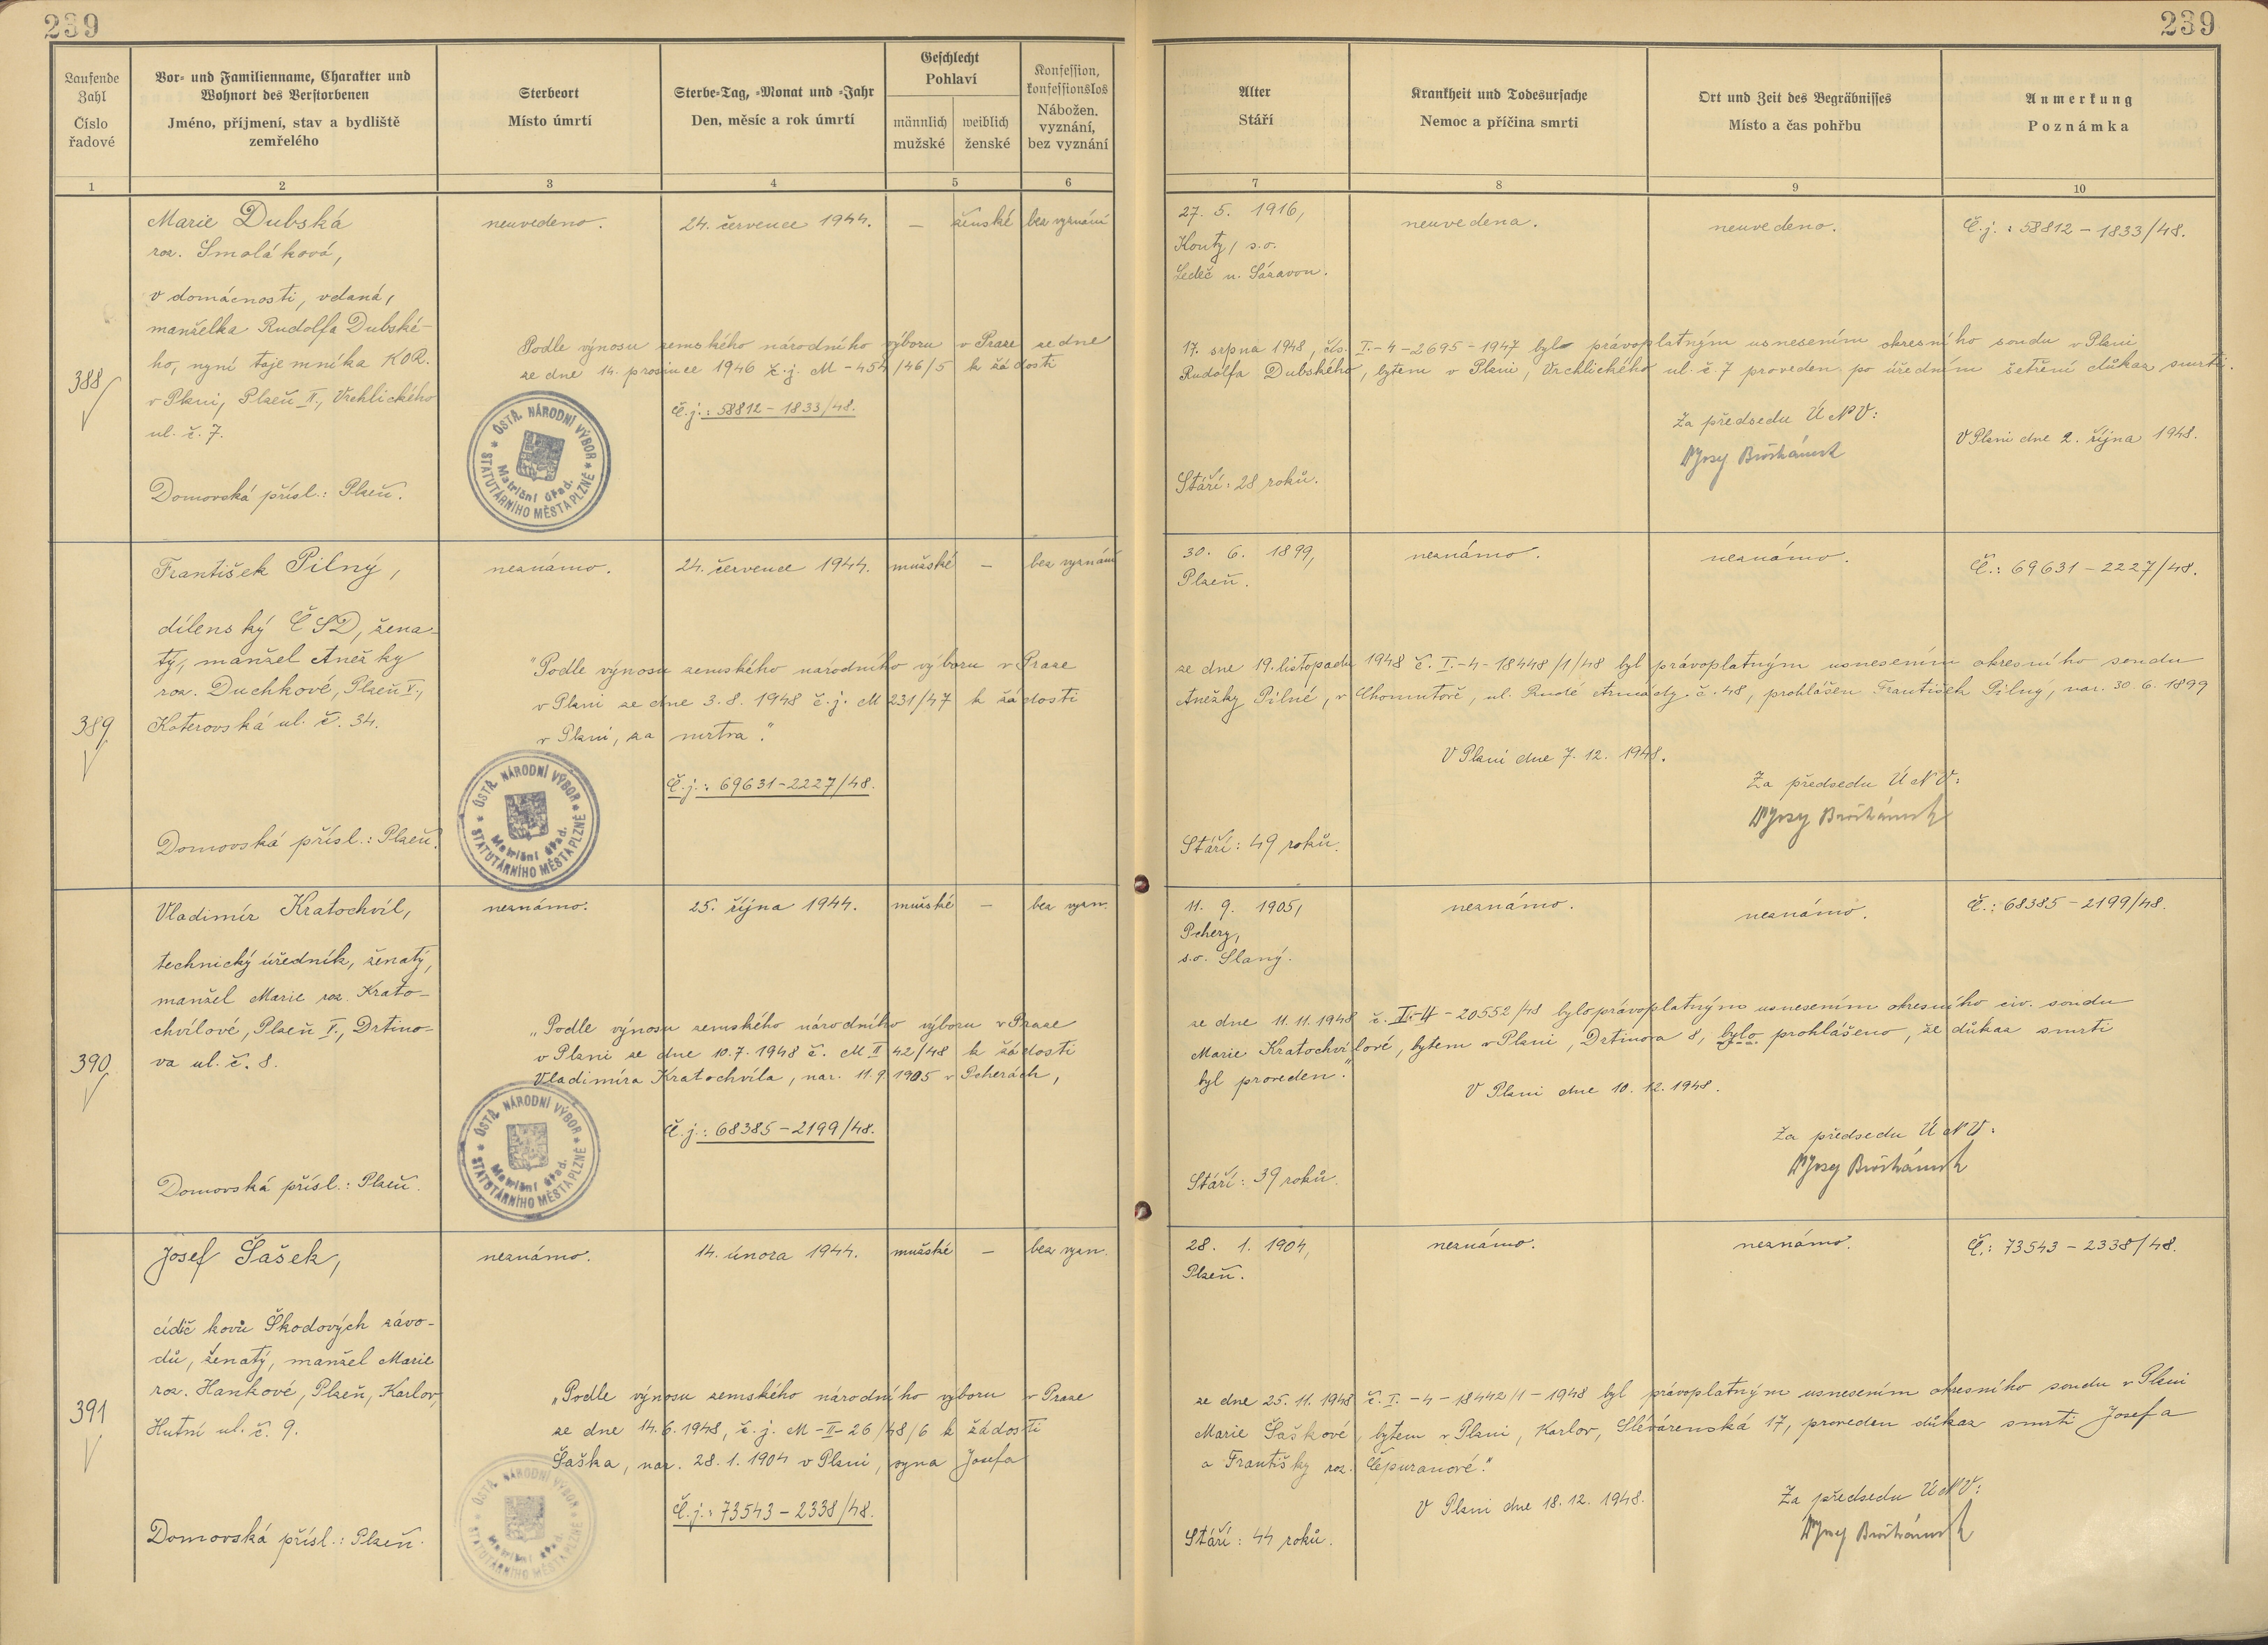 239
239
Laufende
Zahl
Číslo
řadové
Vor- und Familienname, Charakter und
Wohnort des Verstorbenen
Jméno, příjmení, stav a bydliště
zemřelého
Sterbeort
Místo úmrtí
Sterbe-Tag, -Monat und -Jahr
Den, měsíc a rok úmrtí
Geschlecht
Pohlaví
männlich
mužské
weiblich
ženské
Konfession,
konfessionslos
Nábožen.
vyznání,
bez vyznání
Alter
Stáří
Krankheit und Todesursache
Nemoc a příčina smrti
Ort und Zeit des Begräbnisses
Místo a čas pohřbu
Anmerkung
Poznámka
1 2 3 4 5 6 7 8 9 10
388
Marie Dubská
roz. Smoláková,
v domácnosti, vdaná,
manželka Rudolfa Dubské-
ho, nyní tajemníka KOR.
v Plzni, Plzeň II., Vrchlického
ul. č. 7.
Domovská přísl.: Plzeň.
neuvedeno.
24. července 1944.
—
ženské
bez vyznání
27. 5. 1916,
Kouty, s.o.
Ledeč n. Sázavou.
neuvedena.
neuvedeno.
Č.j.: 58812-1833/48.
Podle výnosu zemského národního výboru v Praze ze dne 17. srpna 1948, čís. I.-4-2695-1947 bylo právoplatným usnesením okresního soudu v Plzni
ze dne 14. prosince 1946 č.j. M-454/46/5 k žádosti Rudolfa Dubského, bytem v Plzni, Vrchlického ul. č. 7 proveden po úředním šetření důkaz smrti.
Č.j.: 58812-1833/48.
Za předsedu ÚNV:
V Plzni dne 2. října 1948.
Stáří: 28 roků.
ÚSTŘ. NÁRODNÍ VÝBOR
STATUTÁRNÍHO MĚSTA PLZNĚ
Matriční úřad.
389
František Pilný,
dílenský ČSD, žena-
tý, manžel Anežky
roz. Duchkové, Plzeň V.,
Koterovská ul. č. 34.
Domovská přísl.: Plzeň.
neznámo.
24. července 1944.
mužské
—
bez vyznání
30. 6. 1899,
Plzeň.
neznámo.
neznámo.
Č.: 69631-2227/48.
"Podle výnosu zemského národního výboru v Praze ze dne 19. listopadu 1948 č. I.-4-18448/1/48 byl právoplatným usnesením okresního soudu
v Plzni ze dne 3.8. 1948 č.j. M 231/47 k žádosti Anežky Pilné, v Chomutově, ul. Rudé Armády č. 48, prohlášen František Pilný, nar. 30. 6. 1899
v Plzni, za mrtva."
V Plzni dne 7. 12. 1948.
Č.j.: 69631-2227/48.
Za předsedu ÚNV:
Stáří: 49 roků.
ÚSTŘ. NÁRODNÍ VÝBOR
STATUTÁRNÍHO MĚSTA PLZNĚ
Matriční úřad.
390
Vladimír Kratochvíl,
technický úředník, ženatý,
manžel Marie roz. Krato-
chvílové, Plzeň I., Drtino-
va ul. č. 8.
Domovská přísl.: Plzeň.
neznámo.
25. října 1944.
mužské
—
bez vyzn.
11. 9. 1905,
Pchery,
s.o. Slaný.
neznámo.
neznámo.
Č.: 68385-2199/48.
"Podle výnosu zemského národního výboru v Praze ze dne 11. 11. 1948 č. I.-4-20552/48 bylo právoplatným usnesením okresního civ. soudu
v Plzni ze dne 10.7. 1948 č. M II 42/48 k žádosti Marie Kratochvílové, bytem v Plzni, Drtinova 8, bylo prohlášeno, že důkaz smrti
Vladimíra Kratochvíla, nar. 11. 9. 1905 v Pcherách, byl proveden."
V Plzni dne 10. 12. 1948.
Č.j.: 68385-2199/48.
Za předsedu ÚNV:
Stáří: 39 roků.
ÚSTŘ. NÁRODNÍ VÝBOR
STATUTÁRNÍHO MĚSTA PLZNĚ
Matriční úřad.
391
Josef Šašek,
cídič kovů Škodových závo-
dů, ženatý, manžel Marie
roz. Hankové, Plzeň, Karlov,
Hutní ul. č. 9.
Domovská přísl.: Plzeň.
neznámo.
14. února 1944.
mužské
—
bez vyzn.
28. 1. 1904,
Plzeň.
neznámo.
neznámo.
Č.: 73543-2338/48.
"Podle výnosu zemského národního výboru v Praze ze dne 25. 11. 1948 č. I.-4-18442/1-1948 byl právoplatným usnesením okresního soudu v Plzni
ze dne 14.6.1948, č.j. M-II-26/48/6 k žádosti Marie Šaškové, bytem v Plzni, Karlov, Slévárenská 17, proveden důkaz smrti Josefa
Šaška, nar. 28. 1. 1904 v Plzni, syna Josefa a Františky roz. Čepuranové."
V Plzni dne 18. 12. 1948.
Č.j.: 73543-2338/48.
Za předsedu ÚNV:
Stáří: 44 roků.
ÚSTŘ. NÁRODNÍ VÝBOR
STATUTÁRNÍHO MĚSTA PLZNĚ
Matriční úřad.